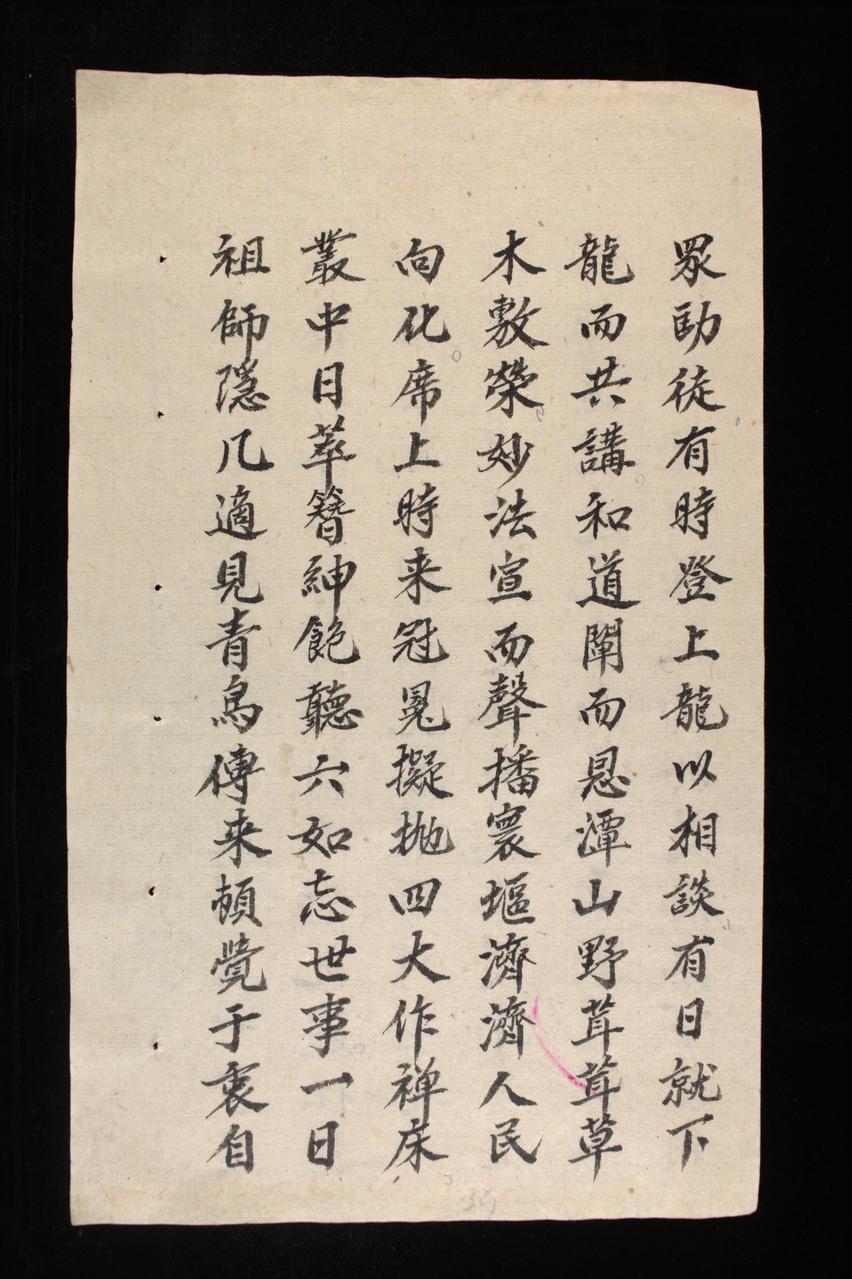 眾劻徒有時登上龍以相談有日就下
龍而共講和道闡而恩潭山野茸茸草
木敷榮妙法宣而聲播寰堰濟濟人民
向化席上時来冠冕擬拋四大作禅床
叢中日萃簪紳飽聽六如忘世事一日
祖師隱几適見青鳥傳来頓覺于衷自